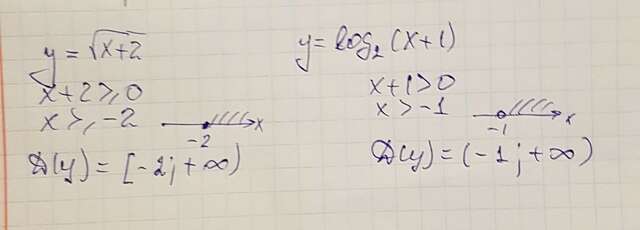 y = √(x+2)
x+2 ≥ 0
x ≥ -2
-2 x
D(y) = [-2; +∞)
y = log₂ (x+1)
x+1 > 0
x > -1
-1 x
D(y) = (-1; +∞)